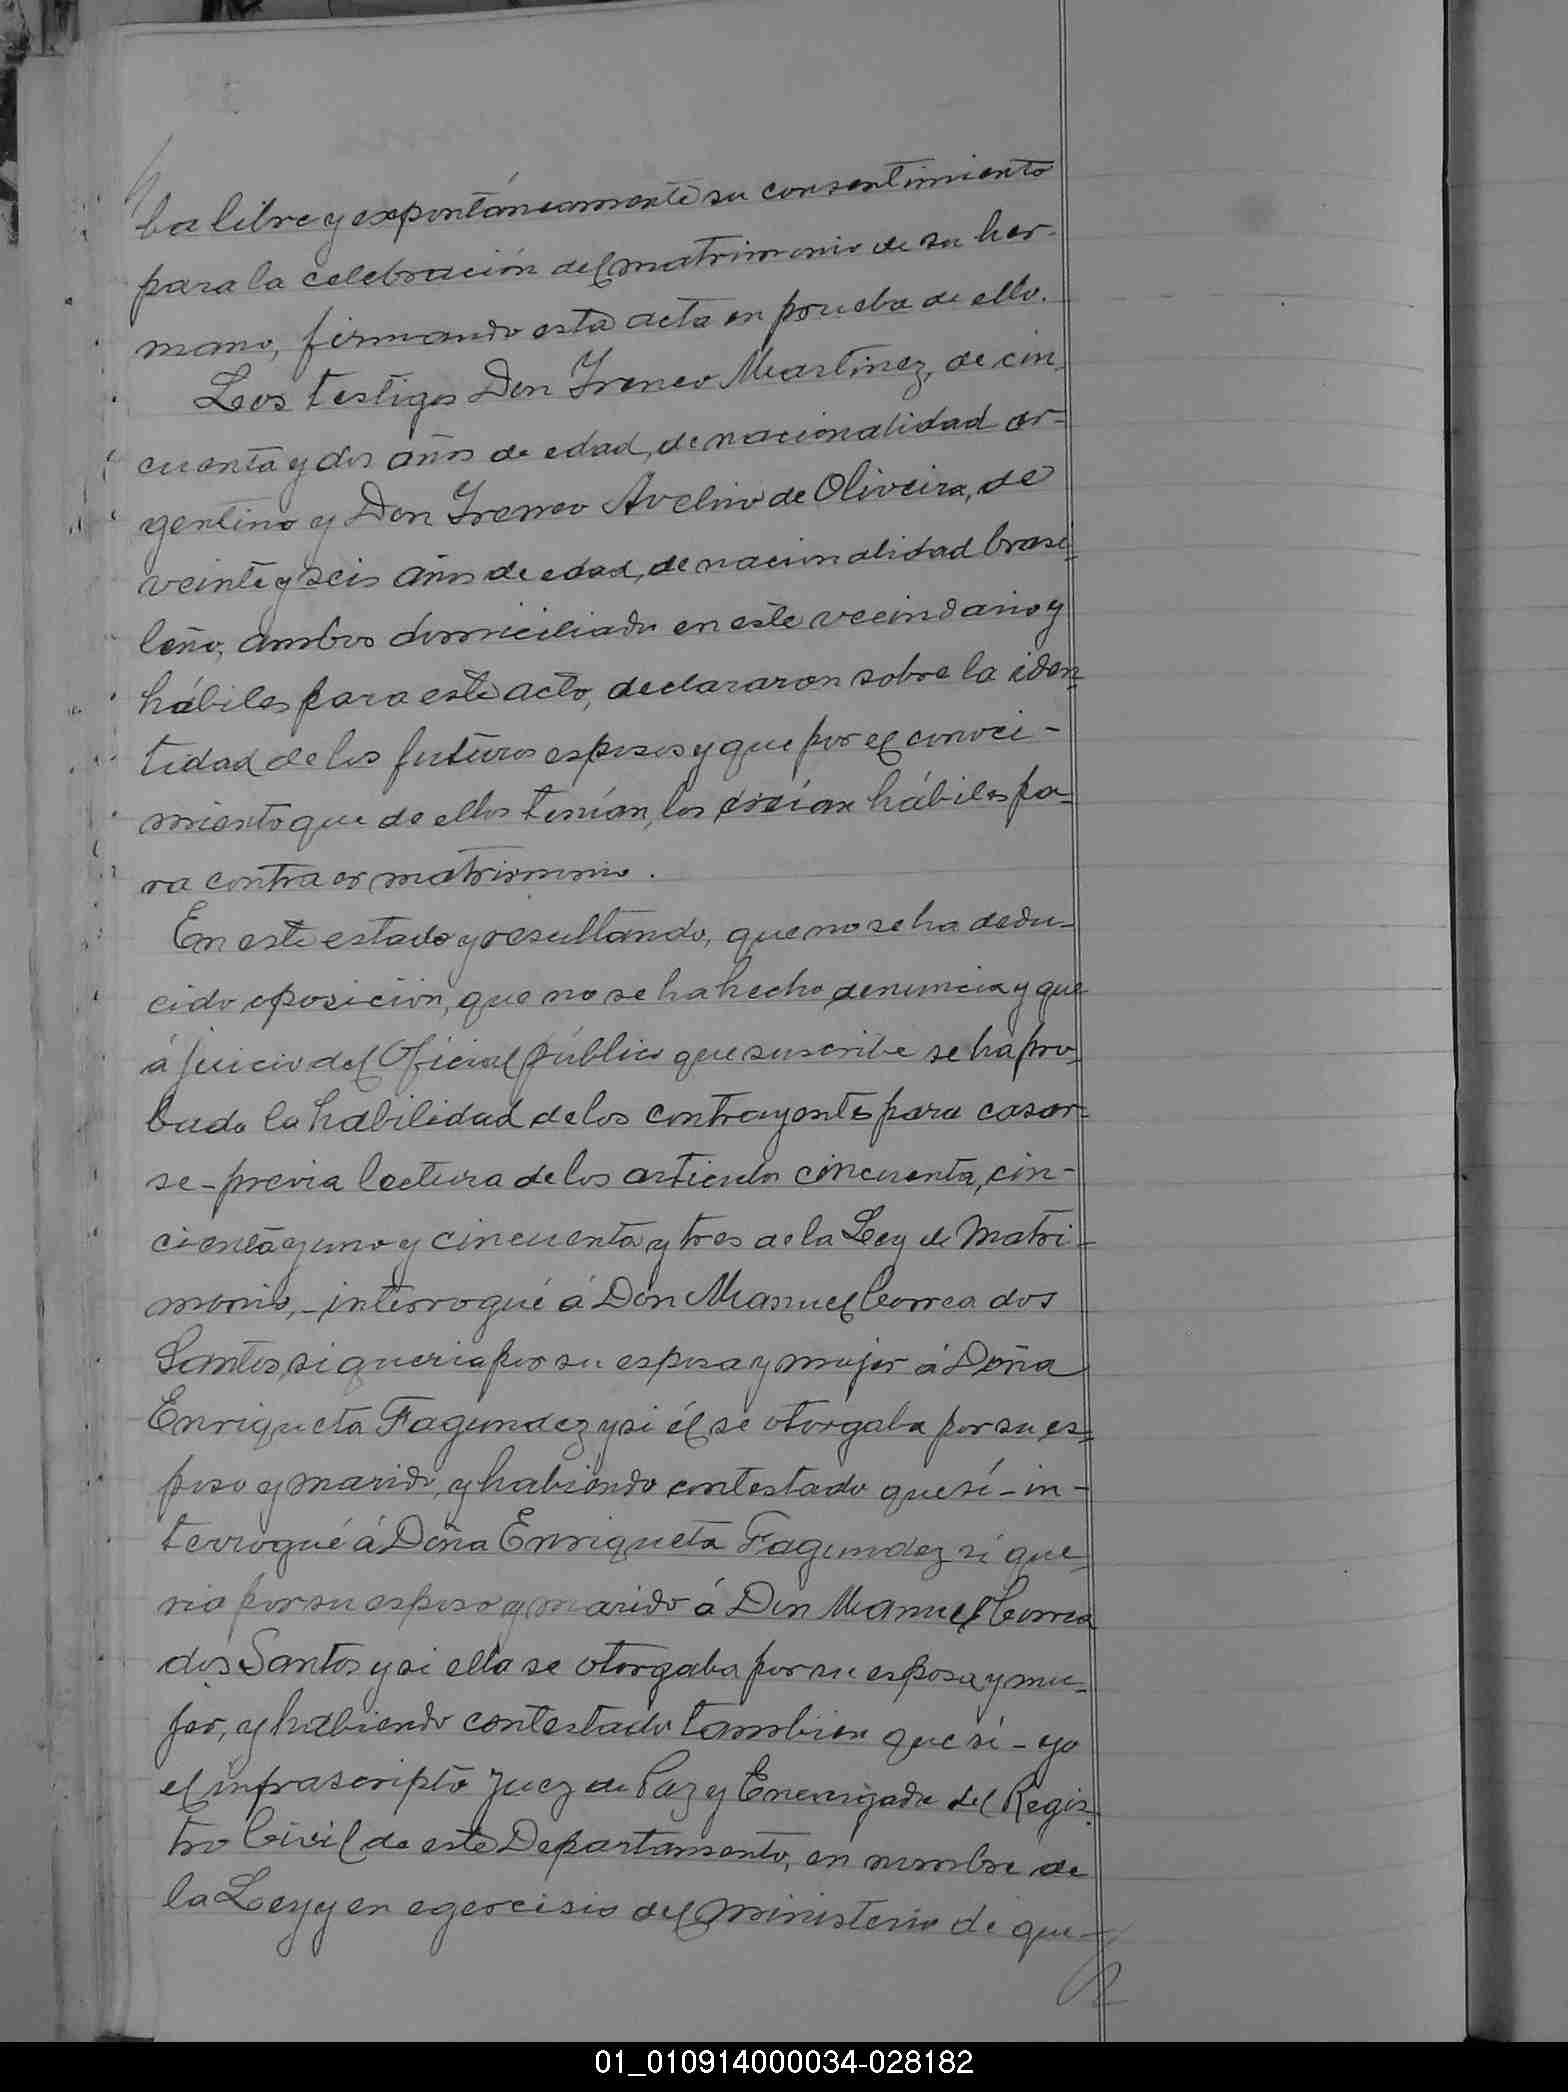 ba libre y expontáneamente su consentimiento
para la celebración del matrimonio de su her-
mano, firmando esta acta en prueba de ello.
Los testigos Don Ireneo Martinez, de cin-
cuenta y dos años de edad, de nacionalidad ar-
gentino y Don Ireneo Avelino de Oliveira, de
veinte y seis años de edad, de nacionalidad brasi-
leño, ambos domiciliados en este vecindario y
hábiles para este acto, declararon sobre la iden-
tidad de los futuros esposos y que por el conoci-
miento que de ellos tenían, los creían hábiles pa-
ra contraer matrimonio.
En este estado y resultando, que no se ha dedu-
cido oposición, que no se ha hecho denuncia y que
á juicio del Oficial público que suscribe se ha pro-
bado la habilidad de los contrayentes para casar-
se - previa lectura de los articulos cincuenta, cin-
cienta y uno y cincuenta y tres de la Ley de Matri-
monio, - interrogué á Don Manuel Correa dos
Santos, si queria por su esposa y mujer á Doña
Enriqueta Fagundez y si él se otorgaba por su es-
poso y marido, y habiendo contestado que sí - in-
terrogué á Doña Enriqueta Fagundez si que-
ria por su esposo y marido á Don Manuel Correa
dos Santos y si ella se otorgaba por su esposa y mu-
jer, y habiendo contestado tambien que sí - yo
el infrascripto Juez de Paz y Encargado del Regis-
tro Civil de este Departamento, en nombre de
la Ley y en egercisio del ministerio de que
01_010914000034-028182